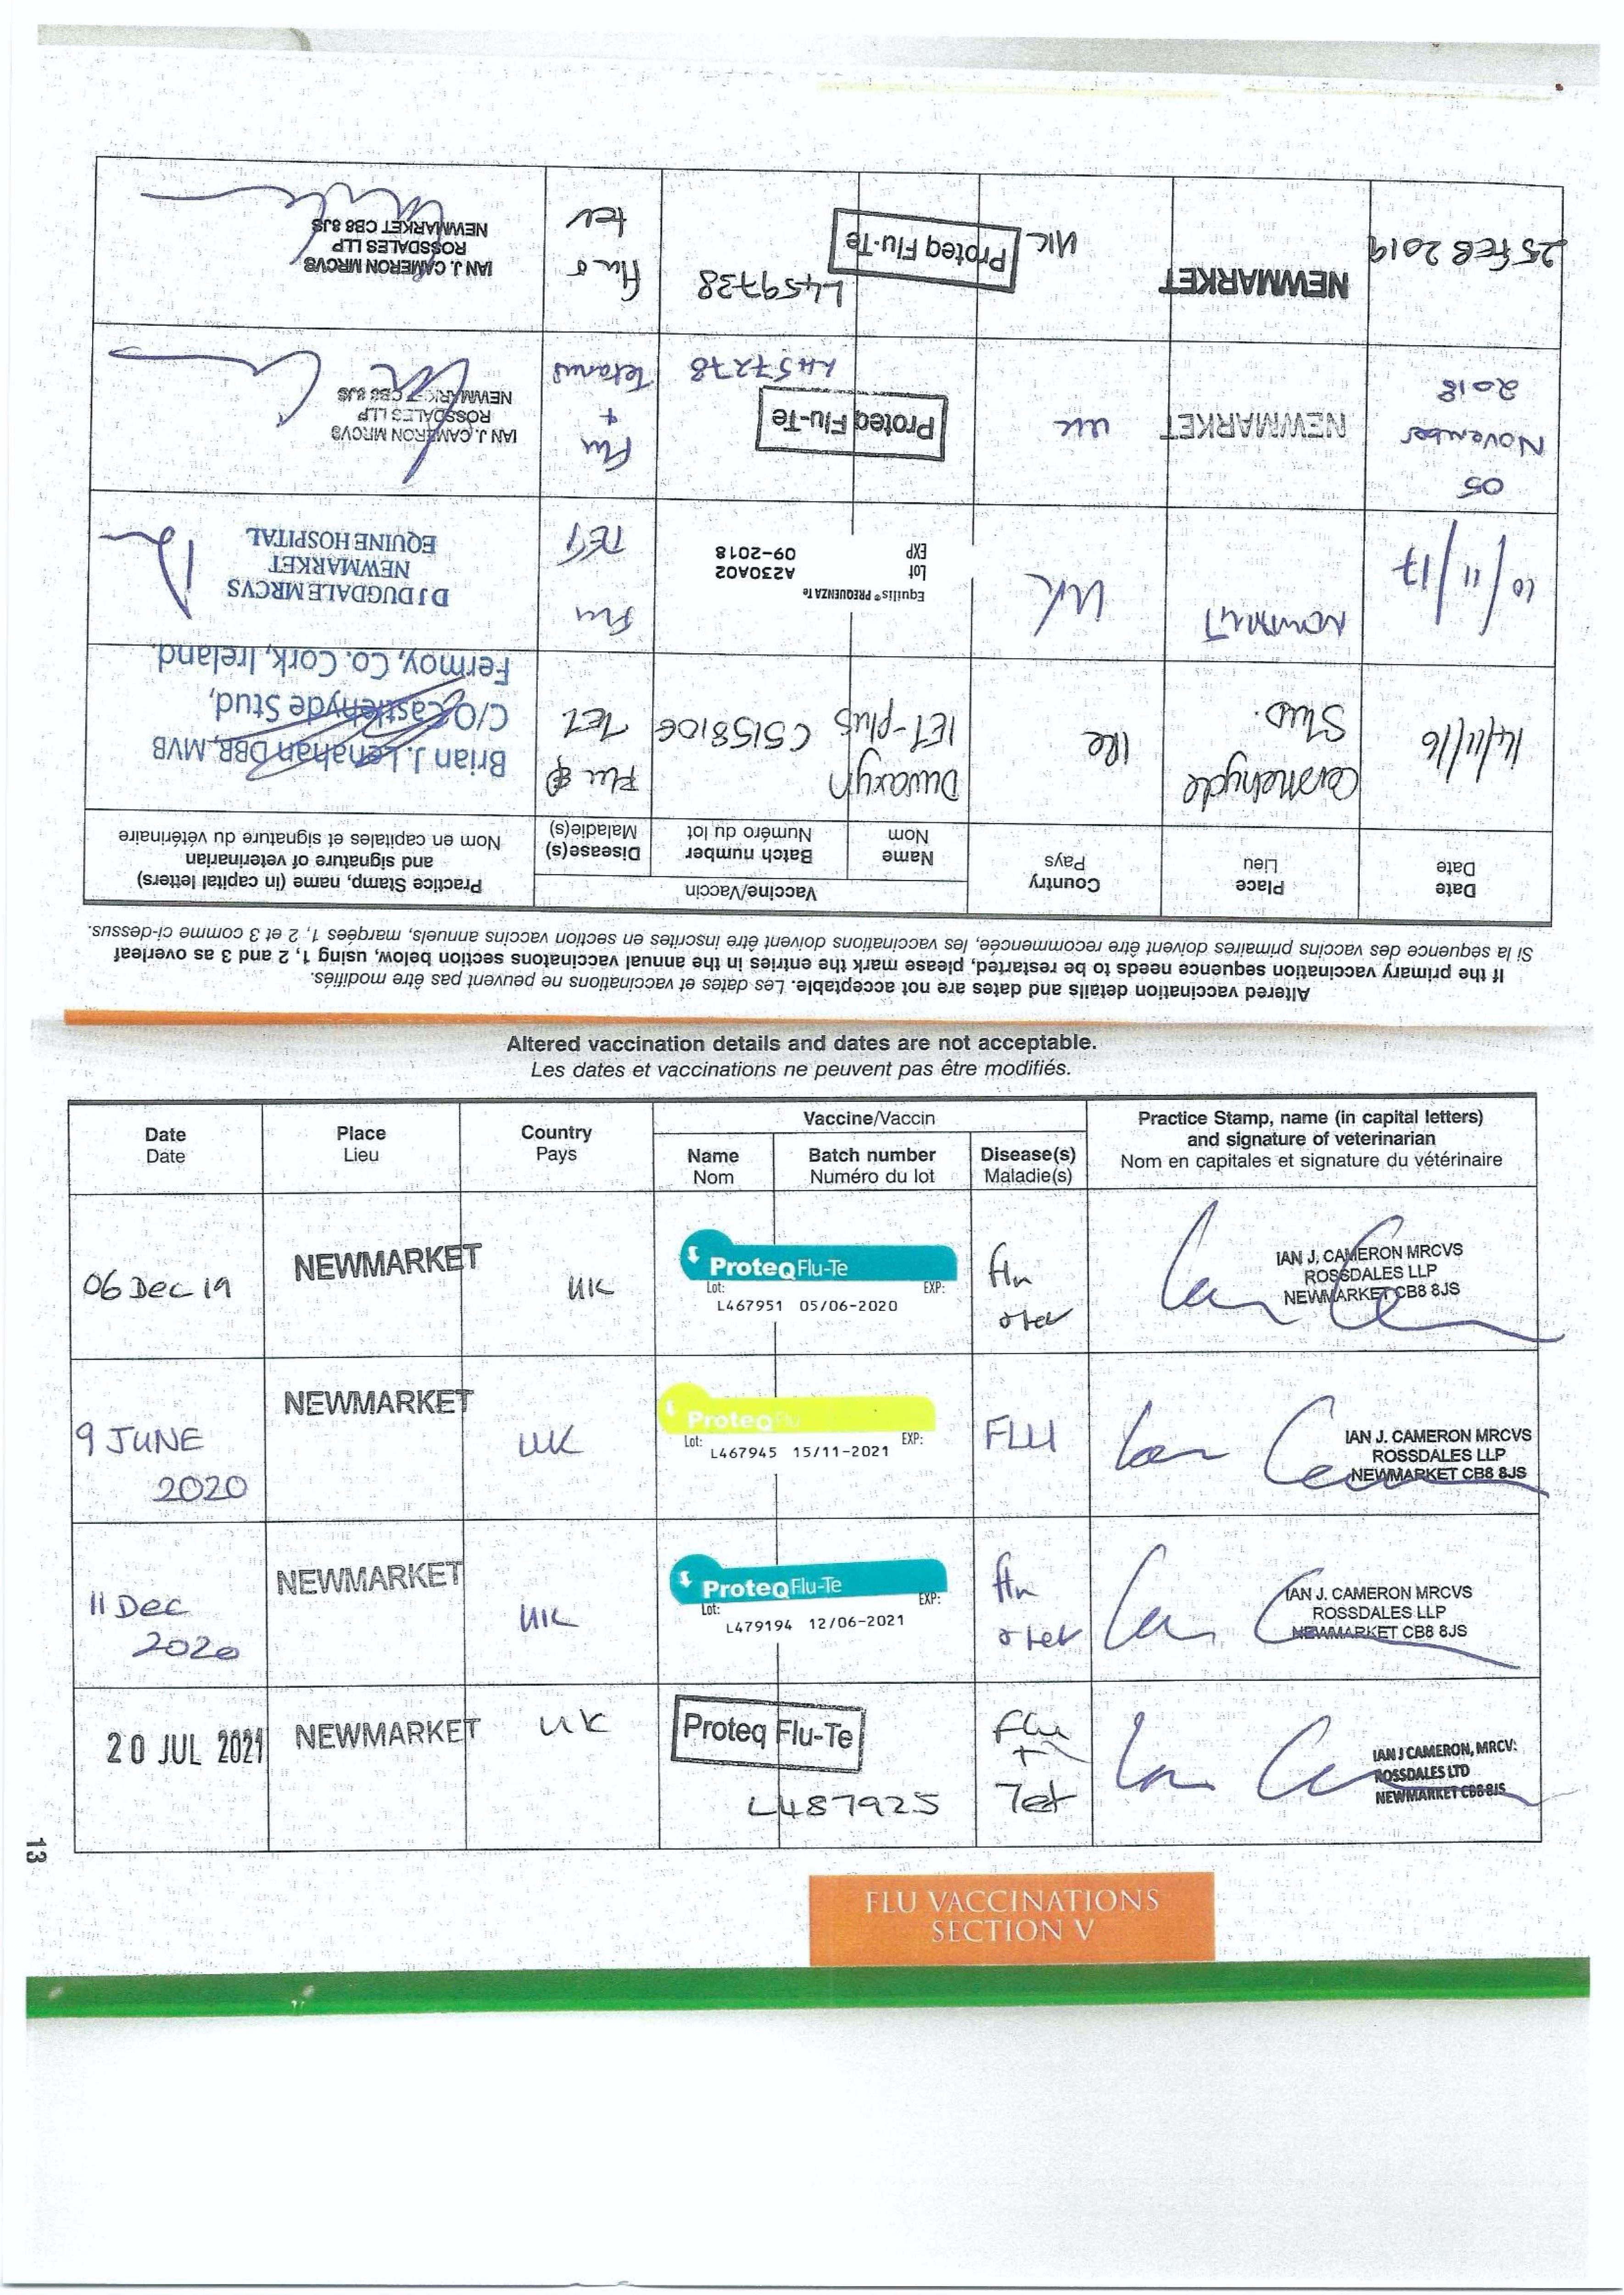 Altered vaccination details and dates are not acceptable. Les dates et vaccinations ne peuvent pas être modifiés.
If the primary vaccination sequence needs to be restarted, please mark the entries in the annual vaccinatons section below, using 1, 2 and 3 as overleaf
Si la séquence des vaccins primaires doivent être recommencée, les vaccinations doivent être inscrites en section vaccins annuels, marqées 1, 2 et 3 comme ci-dessus.
Date
Date
Place
Lieu
Country
Pays
Vaccine/Vaccin
Name
Nom
Batch number
Numéro du lot
Disease(s)
Maladie(s)
Practice Stamp, name (in capital letters)
and signature of veterinarian
Nom en capitales et signature du vétérinaire
14/11/16
Castlehyde
Stud.
IRe
Duvaxyn
IET-plus
C515810E
Flu
TET
Brian J. Lenahan DBR, MVB
C/O Castlehyde Stud,
Fermoy, Co. Cork, Ireland.
10/11/17
UK
Equilis® PREQUENZA Te
Lot A230A02
EXP 09-2018
Flu
TET
D J DUGDALE MRCVS
NEWMARKET
EQUINE HOSPITAL
05
November
2018
NEWMARKET
UK
Proteq Flu-Te
L457278
Flu
+
Tetanus
IAN J. CAMERON MRCVS
ROSSDALES LLP
NEWMARKET CB8 8JS
25 FEB 2019
NEWMARKET
UK
Proteq Flu-Te
L459738
flu &
tet
IAN J. CAMERON MRCVS
ROSSDALES LLP
NEWMARKET CB8 8JS
Altered vaccination details and dates are not acceptable.
Les dates et vaccinations ne peuvent pas être modifiés.
Date
Date
Place
Lieu
Country
Pays
Vaccine/Vaccin
Name
Nom
Batch number
Numéro du lot
Disease(s)
Maladie(s)
Practice Stamp, name (in capital letters)
and signature of veterinarian
Nom en capitales et signature du vétérinaire
06 Dec 19
NEWMARKET
UK
ProteqFlu-Te
Lot: EXP:
L467951 05/06-2020
flu
& tet
IAN J. CAMERON MRCVS
ROSSDALES LLP
NEWMARKET CB8 8JS
9 JUNE
2020
NEWMARKET
UK
ProteqFlu
Lot: EXP:
L467945 15/11-2021
FLU
IAN J. CAMERON MRCVS
ROSSDALES LLP
NEWMARKET CB8 8JS
11 Dec
2020
NEWMARKET
UK
ProteqFlu-Te
Lot: EXP:
L479194 12/06-2021
flu
& tet
IAN J. CAMERON MRCVS
ROSSDALES LLP
NEWMARKET CB8 8JS
20 JUL 2021
NEWMARKET
UK
Proteq Flu-Te
L487925
Flu
+
Tet
IAN J CAMERON, MRCV:
ROSSDALES LTD
NEWMARKET CB8 8JS
13
FLU VACCINATIONS
SECTION V